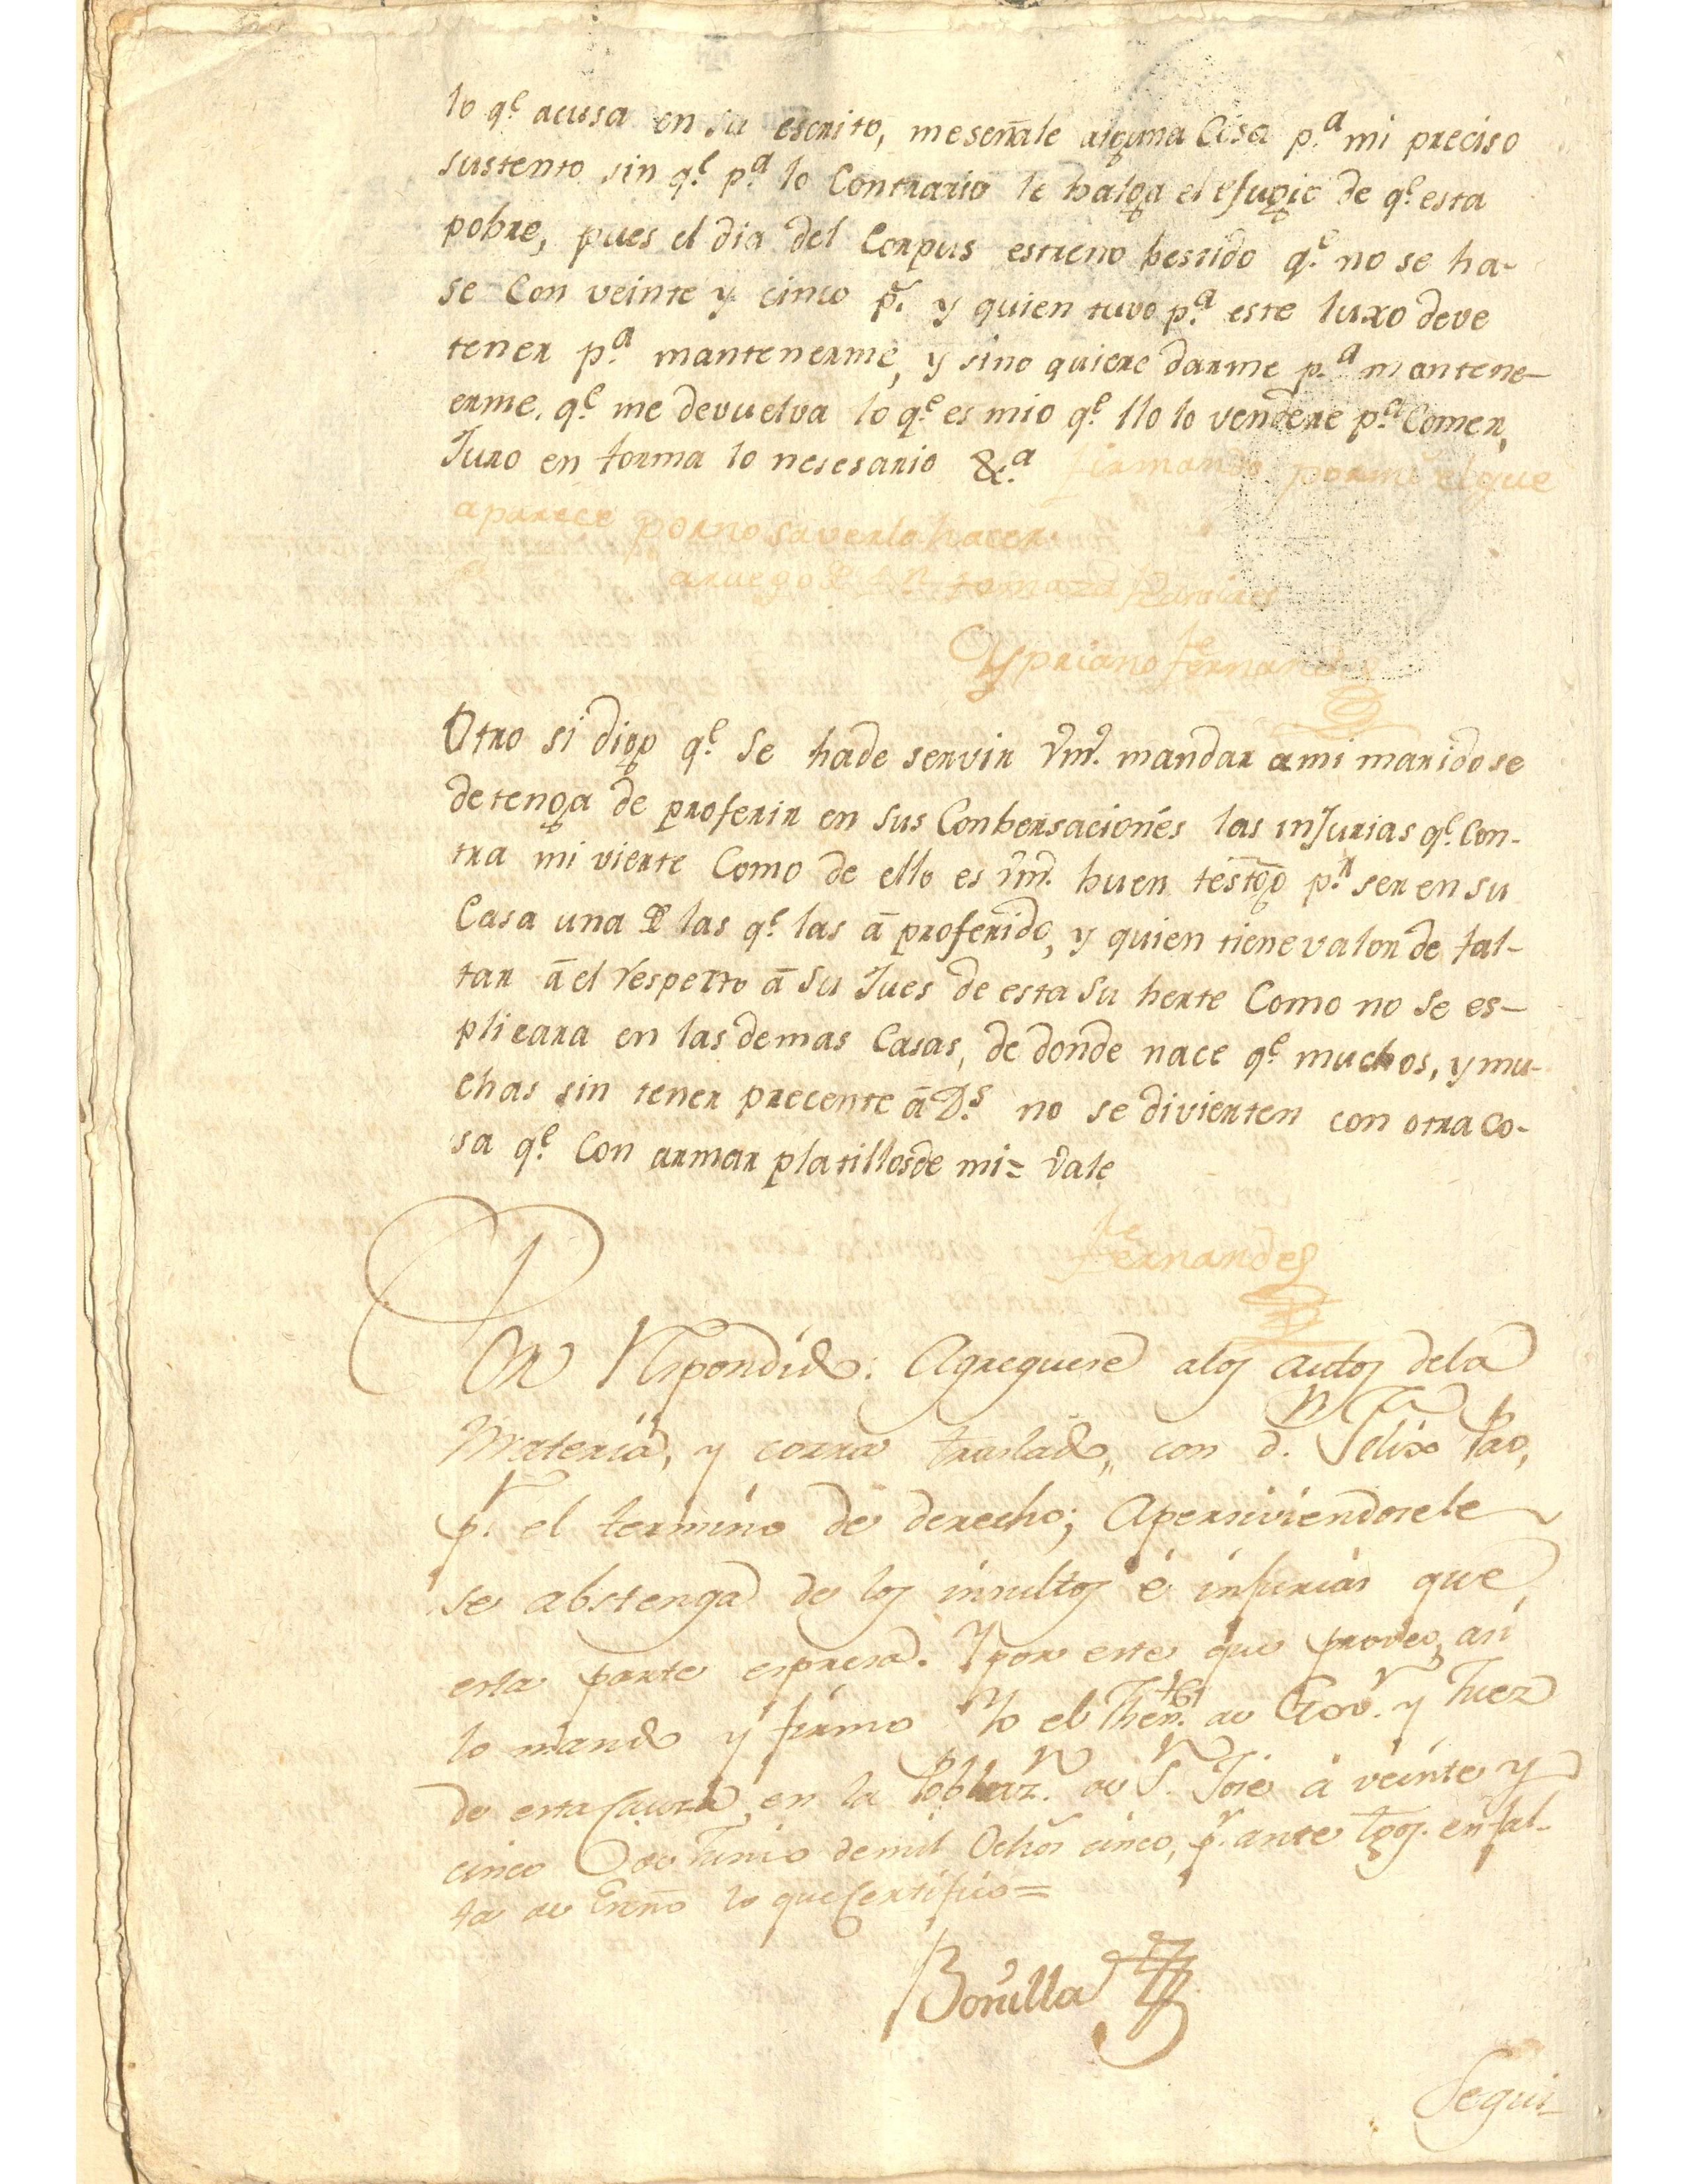 lo q.e acusa en su escrito, meseñale alguna Cosa p.a mi preciso
sustento sin q.e p.a lo Contrario le halga el efugio de q.e esta
pobre, pues el dia del Corpus estreno bestido q.e no se ha-
se Con veinte y cinco p.s y quien tuvo p.a este luxo deve
tener p.a mantenerme, y sino quiere darme p.a mantene-
erme. q.e me devuelva lo q.e es mio q.e llo lo vendere p.a Comer,
Juro en forma lo nesesario &.a firmando por mi el que
aparece por no saverla hacer.
aruego de tomaza Ramires
Cypriano Fernandes
Otro si digo q.e se hade servir Vm. mandar ami marido se
detenga de proferir en sus Conbersaciones las inJurias q.e Con-
tra mi vierte Como de ello es Vm. buen testgo p.r ser en su
Casa una de las q.e las ā proferido, y quien tiene valor de fal-
tar ā el respecto ā su Jues de esta su herte Como no se es-
plicara en las demas Casas, de donde nace q.e muchos, y mu-
chas sin tener precente ā D.s no se divierten con otra co-
sa q.e Con armar platillos de mi = Vale
Fernandes
Por Respondido: Agreguese alos autos dela
Materia, y corra traslado, con d.n Felix Pao,
p.r el termino de derecho; Apersiviendosele
se abstenga de los insultos é injurias que
esta parte espresa. Y por este que proveo, asi
lo mando y firmo Yo el Then.te de Gov.r y Juez
de esta Causa, en la Poblaz.n de S.n José á veinte y
cinco de Junio de mil Ochos cinco, p.r ante tgos. en fal-
ta de Esno lo que Certifico =
Bonilla
Segui-